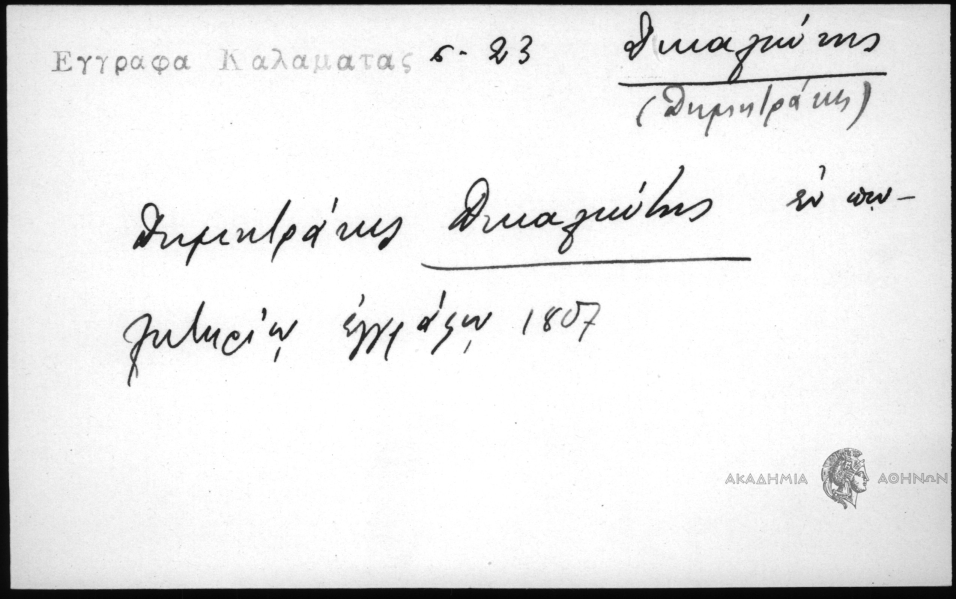 Εγγραφα Καλαματας σ. 23 Δικαιώτης
(Δημητράκης)
Δημητράκης Δικαιώτης ἐν πω-
λητηρίῳ ἐγγράφῳ 1807
ΑΚΑΔΗΜΙΑ ΑΘΗΝΩΝ